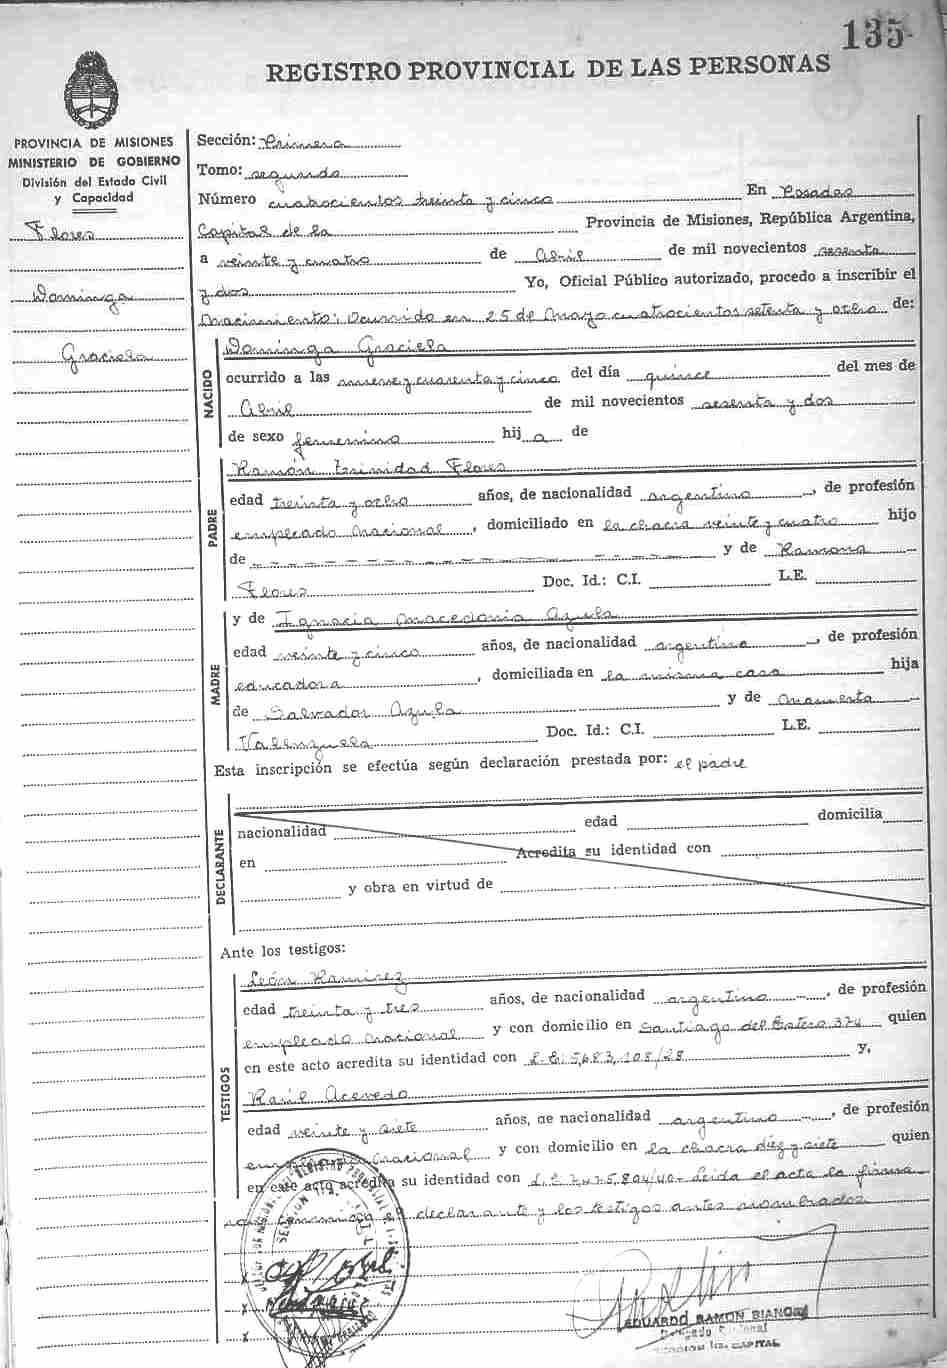 135
REGISTRO PROVINCIAL DE LAS PERSONAS
PROVINCIA DE MISIONES
MINISTERIO DE GOBIERNO
División del Estado Civil
y Capacidad
Flores
Dominga
Graciela
Sección: Primera
Tomo: segundo
Número cuatrocientos treinta y cinco En Posadas
Capital de la Provincia de Misiones, República Argentina,
a veinte y cuatro de Abril de mil novecientos sesenta
y dos Yo, Oficial Público autorizado, procedo a inscribir el
nacimiento: Ocurrido en 25 de Mayo cuatrocientos setenta y ocho de:
NACIDO
Dominga Graciela
ocurrido a las nueve y cuarenta y cinco del día quince del mes de
Abril de mil novecientos sesenta y dos
de sexo femenino hija de
PADRE
Ramón Trinidad Flores
edad treinta y ocho años, de nacionalidad argentino, de profesión
empleado nacional, domiciliado en la chacra veinte y cuatro hijo
de y de Ramona
Flores Doc. Id.: C.I. L.E.
MADRE
y de Ignacia Macedonia Azula
edad veinte y cinco años, de nacionalidad argentina, de profesión
educadora, domiciliada en la misma casa hija
de Salvador Azula y de Mamerta
Valenzuela Doc. Id.: C.I. L.E.
Esta inscripción se efectúa según declaración prestada por: el padre
DECLARANTE
nacionalidad edad domicilia
en Acredita su identidad con
y obra en virtud de
Ante los testigos:
TESTIGOS
León Ramirez
edad treinta y tres años, de nacionalidad argentino, de profesión
empleado nacional y con domicilio en Santiago del Estero 374 quien
en este acto acredita su identidad con L.E. 5,683,108/28 y,
Raúl Acevedo
edad veinte y siete años, de nacionalidad argentino, de profesión
nacional y con domicilio en la chacra diez y siete quien
en este acto acredita su identidad con 7475,804/40- Leida el acta la firma
conmigo declarante y los testigos antes nombrados
EDUARDO RAMON BIANCHI
CAPITAL